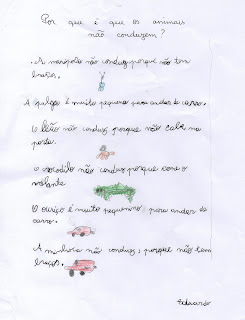 Por que é que os animais
não conduzem?
A mariposa não conduz porque não tem
braços.
A pulga é muito pequena para andar de carro.
O leão não conduz porque não cabe na
porta.
O crocodilo não conduz porque come o
volante
O ouriço é muito pequenino para andar de
carro.
A minhoca não conduz, porque não tem
braços.
Eduardo